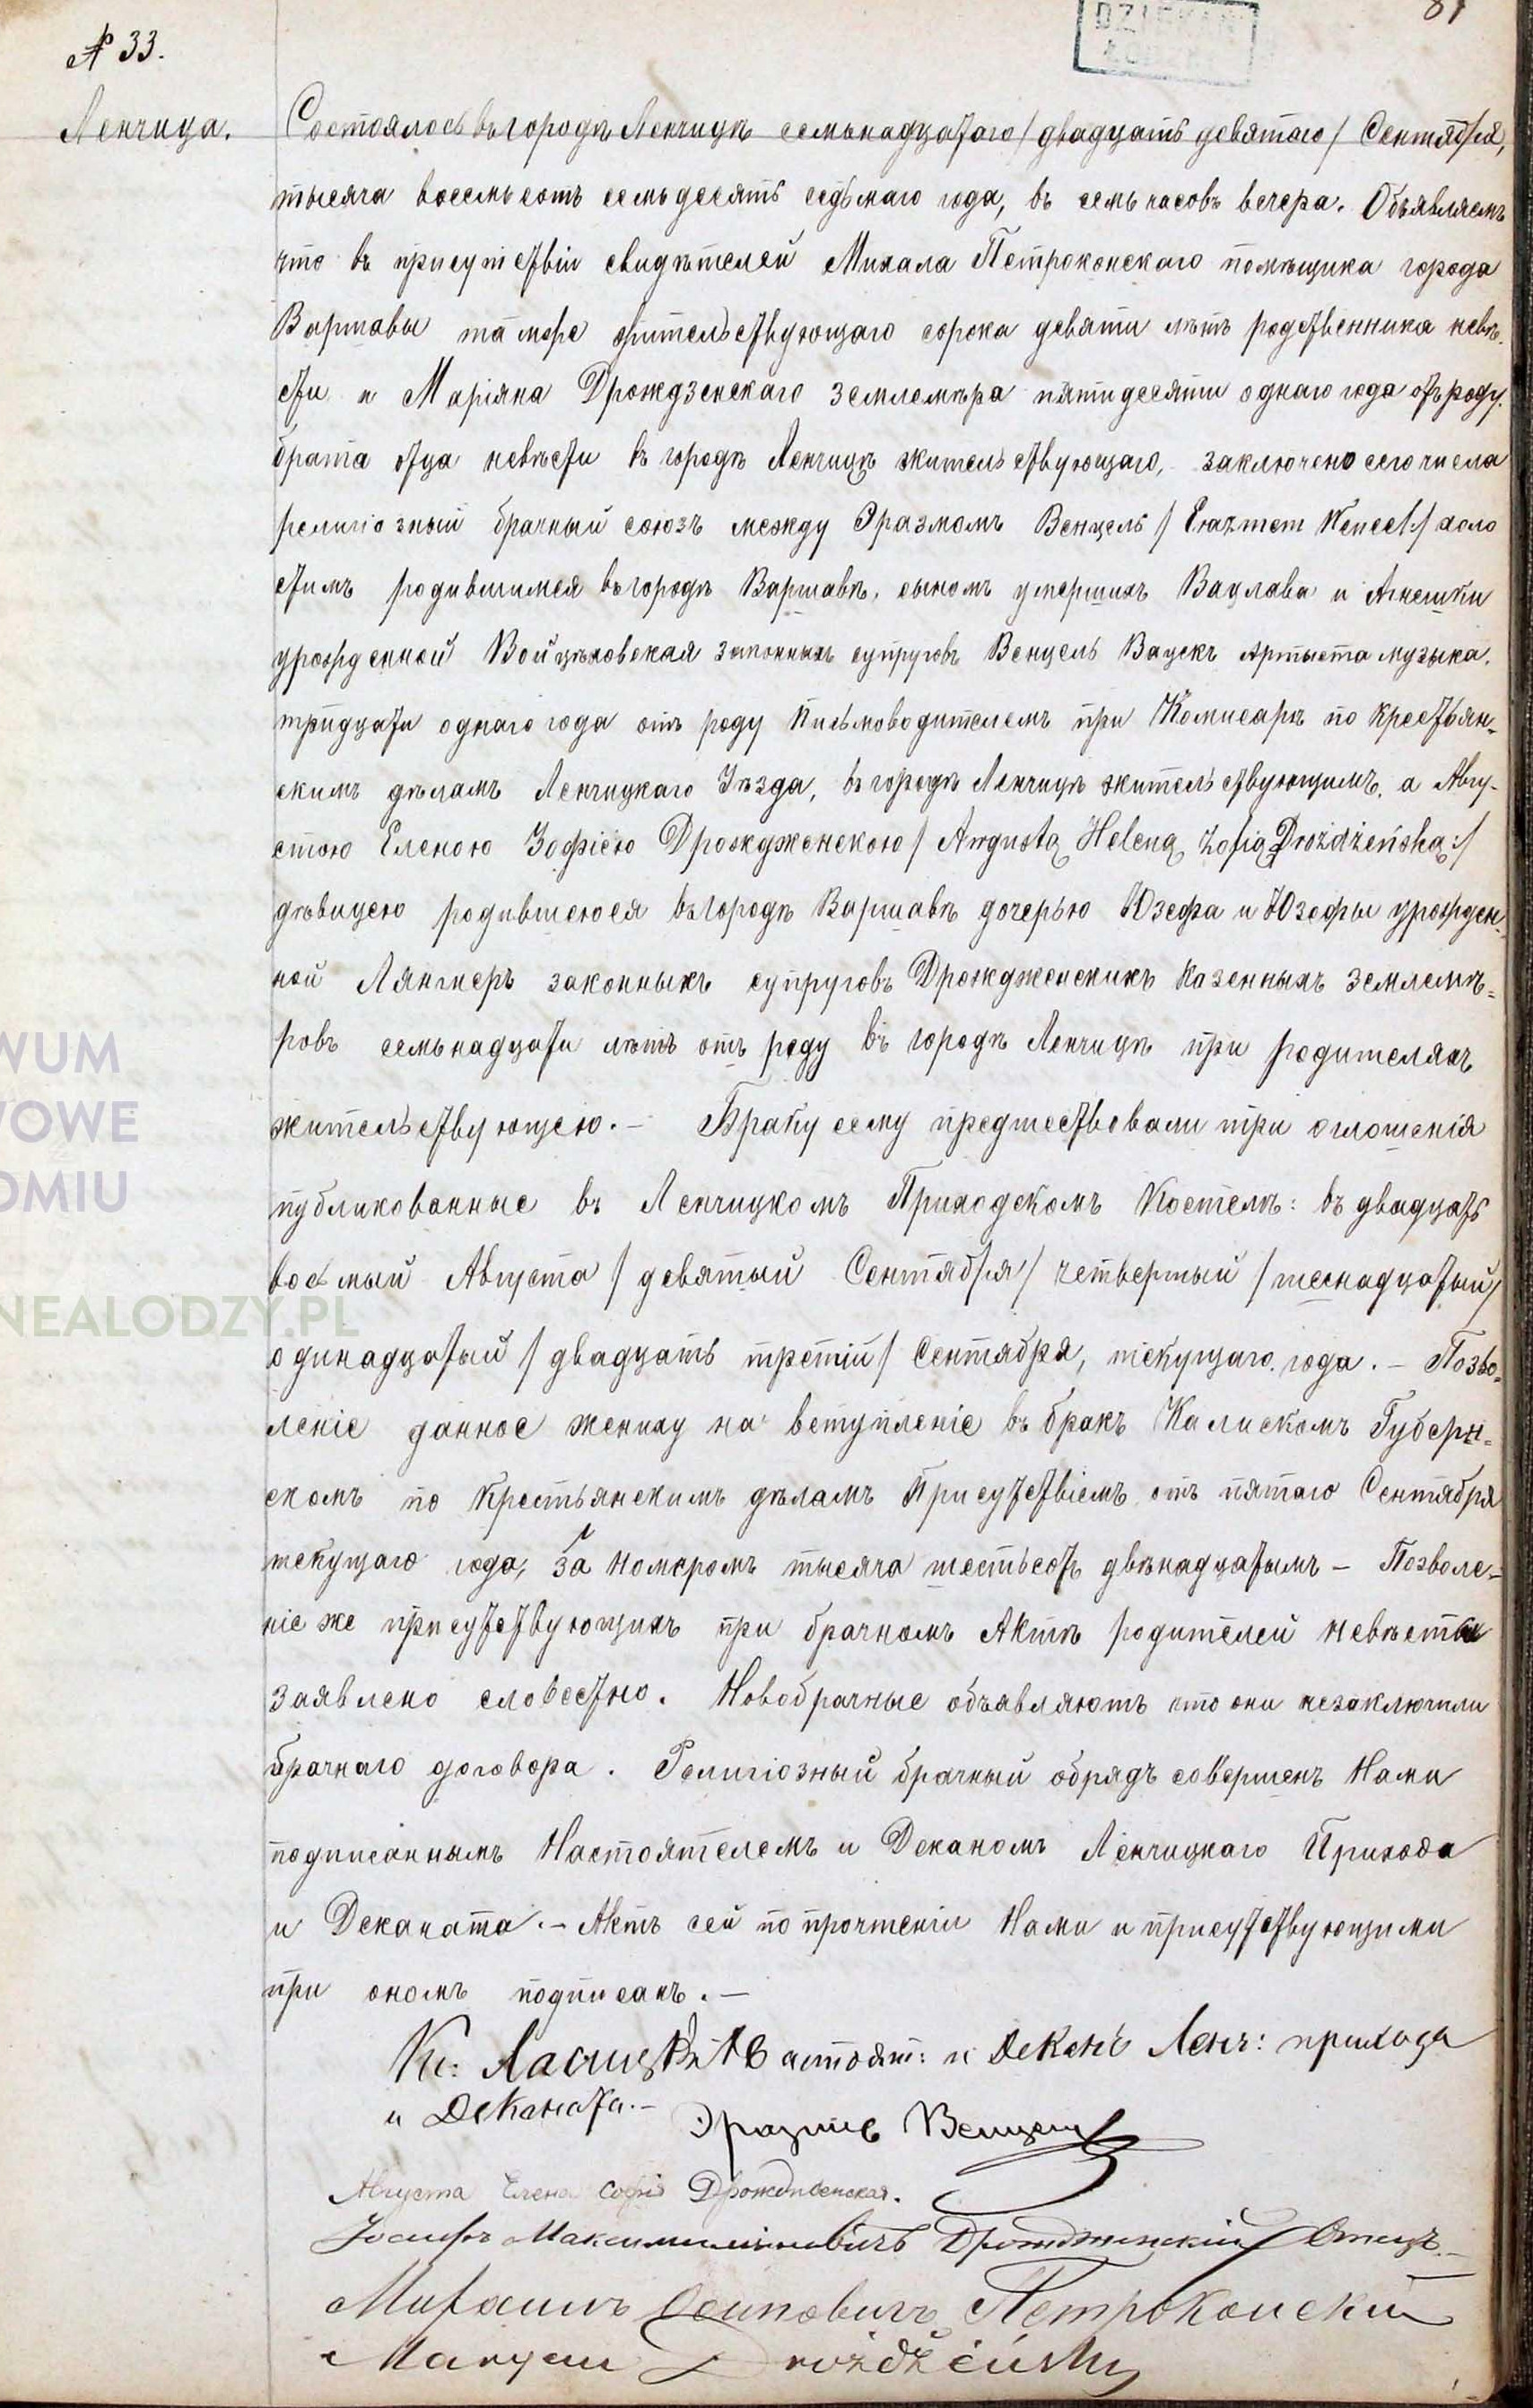 81
DZIEKAN
№ 33.
Ленчица.
Состоялось въ городѣ Ленчицѣ семьнадцатаго / двадцать девятаго / Сентября,
тысяча восемьсотъ семьдесять седьмаго года, въ семь часовъ вечера. Объявляемъ
что въ присутствіи свидѣтелей Михала Петроконскаго помѣщика города
Варшавы тамже жительствующаго сорока девяти лѣтъ родственника невѣ-
сти и Маріяна Дрождзенскаго землемѣра пятидесяти однаго года отъ роду.
брата отца невѣсти въ городѣ Ленчицѣ жительствующаго, заключено сего числа
религіозный брачный союзъ между Эразмомъ Венцель / Erazmem Wencel :/ холо
стимъ родившимся въ городѣ Варшавѣ, сыномъ умершихъ Вацлава и Агнешки
урожденной Войцѣховская законныхъ супруговъ Венцель Вацекъ Артыста музыка.
тридцати однаго года отъ роду Письмоводителемъ при Комисарѣ по Крестьян-
скимъ дѣламъ Ленчицкаго Уѣзда, въ городѣ Ленчицѣ жительствующимъ, а Авгу-
стою Еленою Зофіею Дрождженскою / Augustą Heleną Zofią Drożdżeńską :/
дѣвицею родившеюся въ городѣ Варшавѣ дочерью Юзефа и Юзефы урожден-
ной Лянгнеръ законныхъ супруговъ Дрождженскихъ Казенныхъ землемѣ-
ровъ семьнадцати лѣтъ отъ роду въ городѣ Ленчицѣ при родителяхъ
жительствующею. – Браку сему предшествовали три оглошенія
публикованные въ Ленчицкомъ Приходскомъ Костелѣ: въ двадцать
восьмый Августа / девятый Сентября / четвертый / шеснадцатый /
одинадцатый / двадцать третій / Сентября, текущаго года. – Позво-
леніе данное жениху на вступленіе въ бракъ Калискомъ Губерн-
скомъ по Крестьянскимъ дѣламъ Присутствіемъ отъ пятаго Сентября
текущаго года, за номеромъ тысяча шестьсотъ двѣнадцатымъ – Позволе-
ніе же присутствующихъ при брачномъ Актѣ родителей невѣсты
заявлено словестно. Новобрачные объявляютъ что они незаключили
брачнаго договора. Религіозный брачный обрядъ совершенъ Нами
подписаннымъ Настоятелемъ и Деканомъ Ленчицкаго Прихода
и Деканата. – Актъ сей по прочтеніи Нами и присутствующими
при ономъ подписанъ. –
Кс: Настоят: и Деканъ Ленч: прихода
и Деканата. –
Эразмъ Венцель
Августа Елена Софія Дрождженская.
Іосифъ Максимиліановичъ Дрождженскій Отецъ. –
Михаилъ Осиповичъ Петроконскій
Maryan Drożdżeński
WUM
WOWE
OMIU
NEALODZY.PL